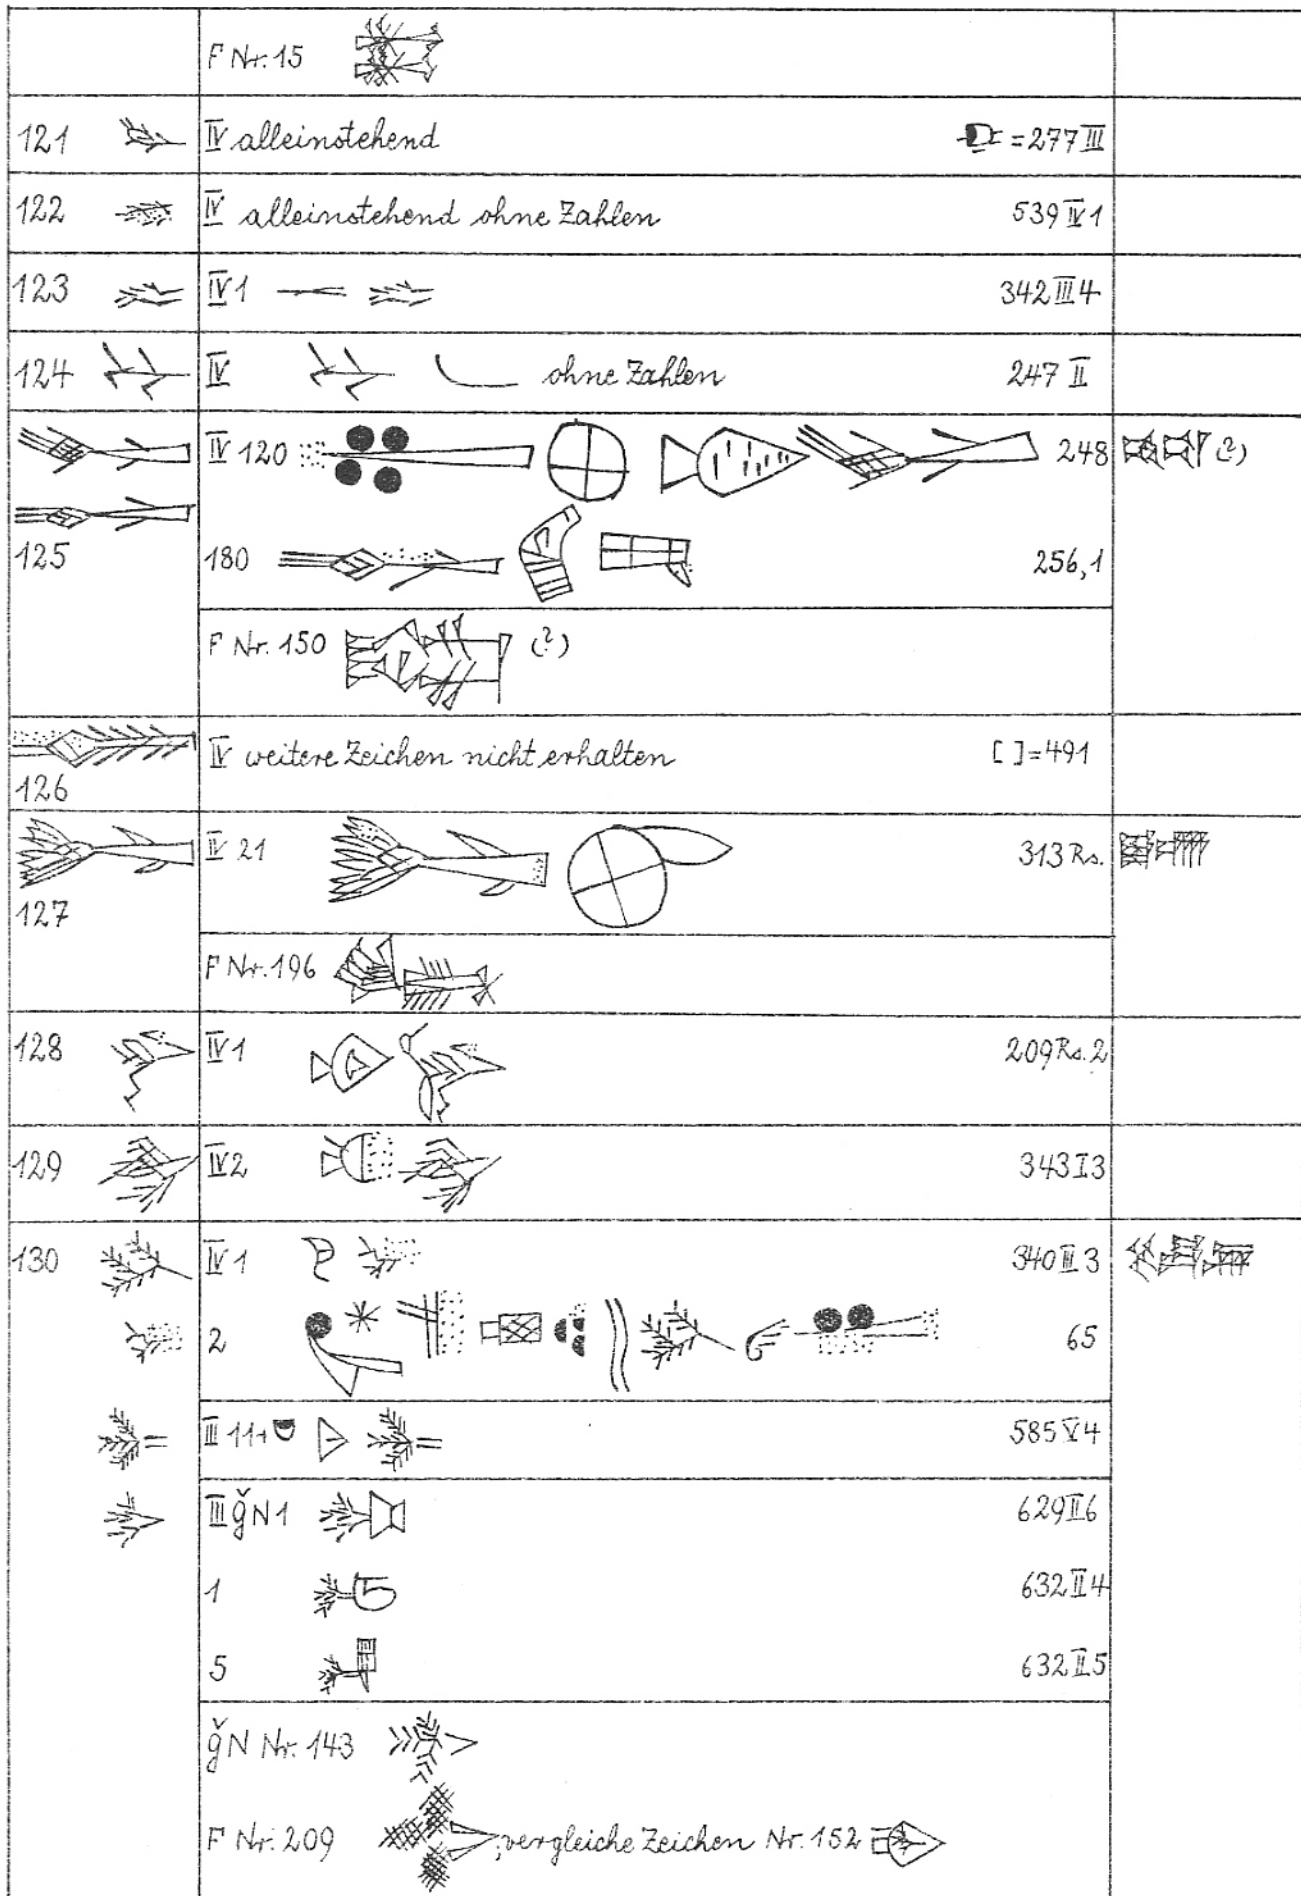 F Nr. 15
121 IV alleinstehend =277 III
122 IV alleinstehend ohne Zahlen 539 IV 1
123 IV 1 342 III 4
124 IV ohne Zahlen 247 II
IV 120 248 (?)
125 180 256,1
F Nr. 150 (?)
IV weitere Zeichen nicht erhalten [ ]=491
126
IV 21 313 Rs.
127
F Nr. 196
128 IV 1 209 Rs. 2
129 IV 2 343 I 3
130 IV 1 340 III 3
2 65
III 11+ 585 V 4
III ǧN 1 629 II 6
1 632 II 4
5 632 II 5
ǧN Nr. 143
F Nr. 209 ; vergleiche Zeichen Nr. 152